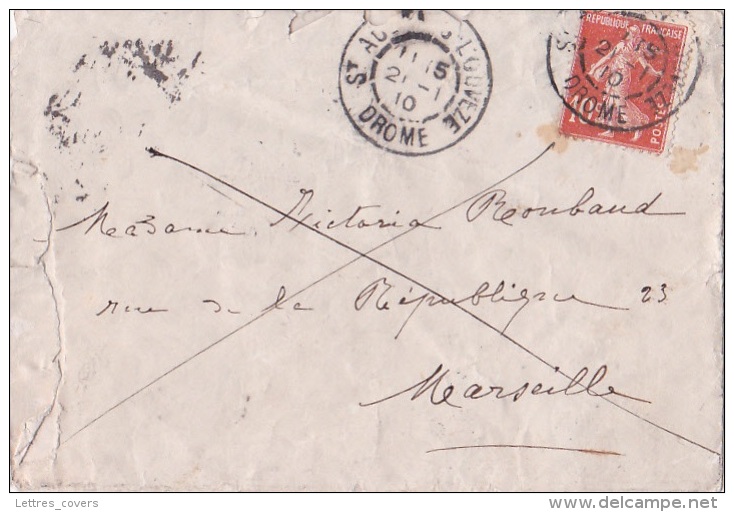 ST AU S L'OUVEZE
11 15
21 - 1
10
DROME
REPUBLIQUE FRANCAISE
15
21 1
10
ZE
DROME
10c
POSTES
Madame Victoria Roubaud
rue de la République 23
Marseille
Lettres_covers
www.delcampe.net